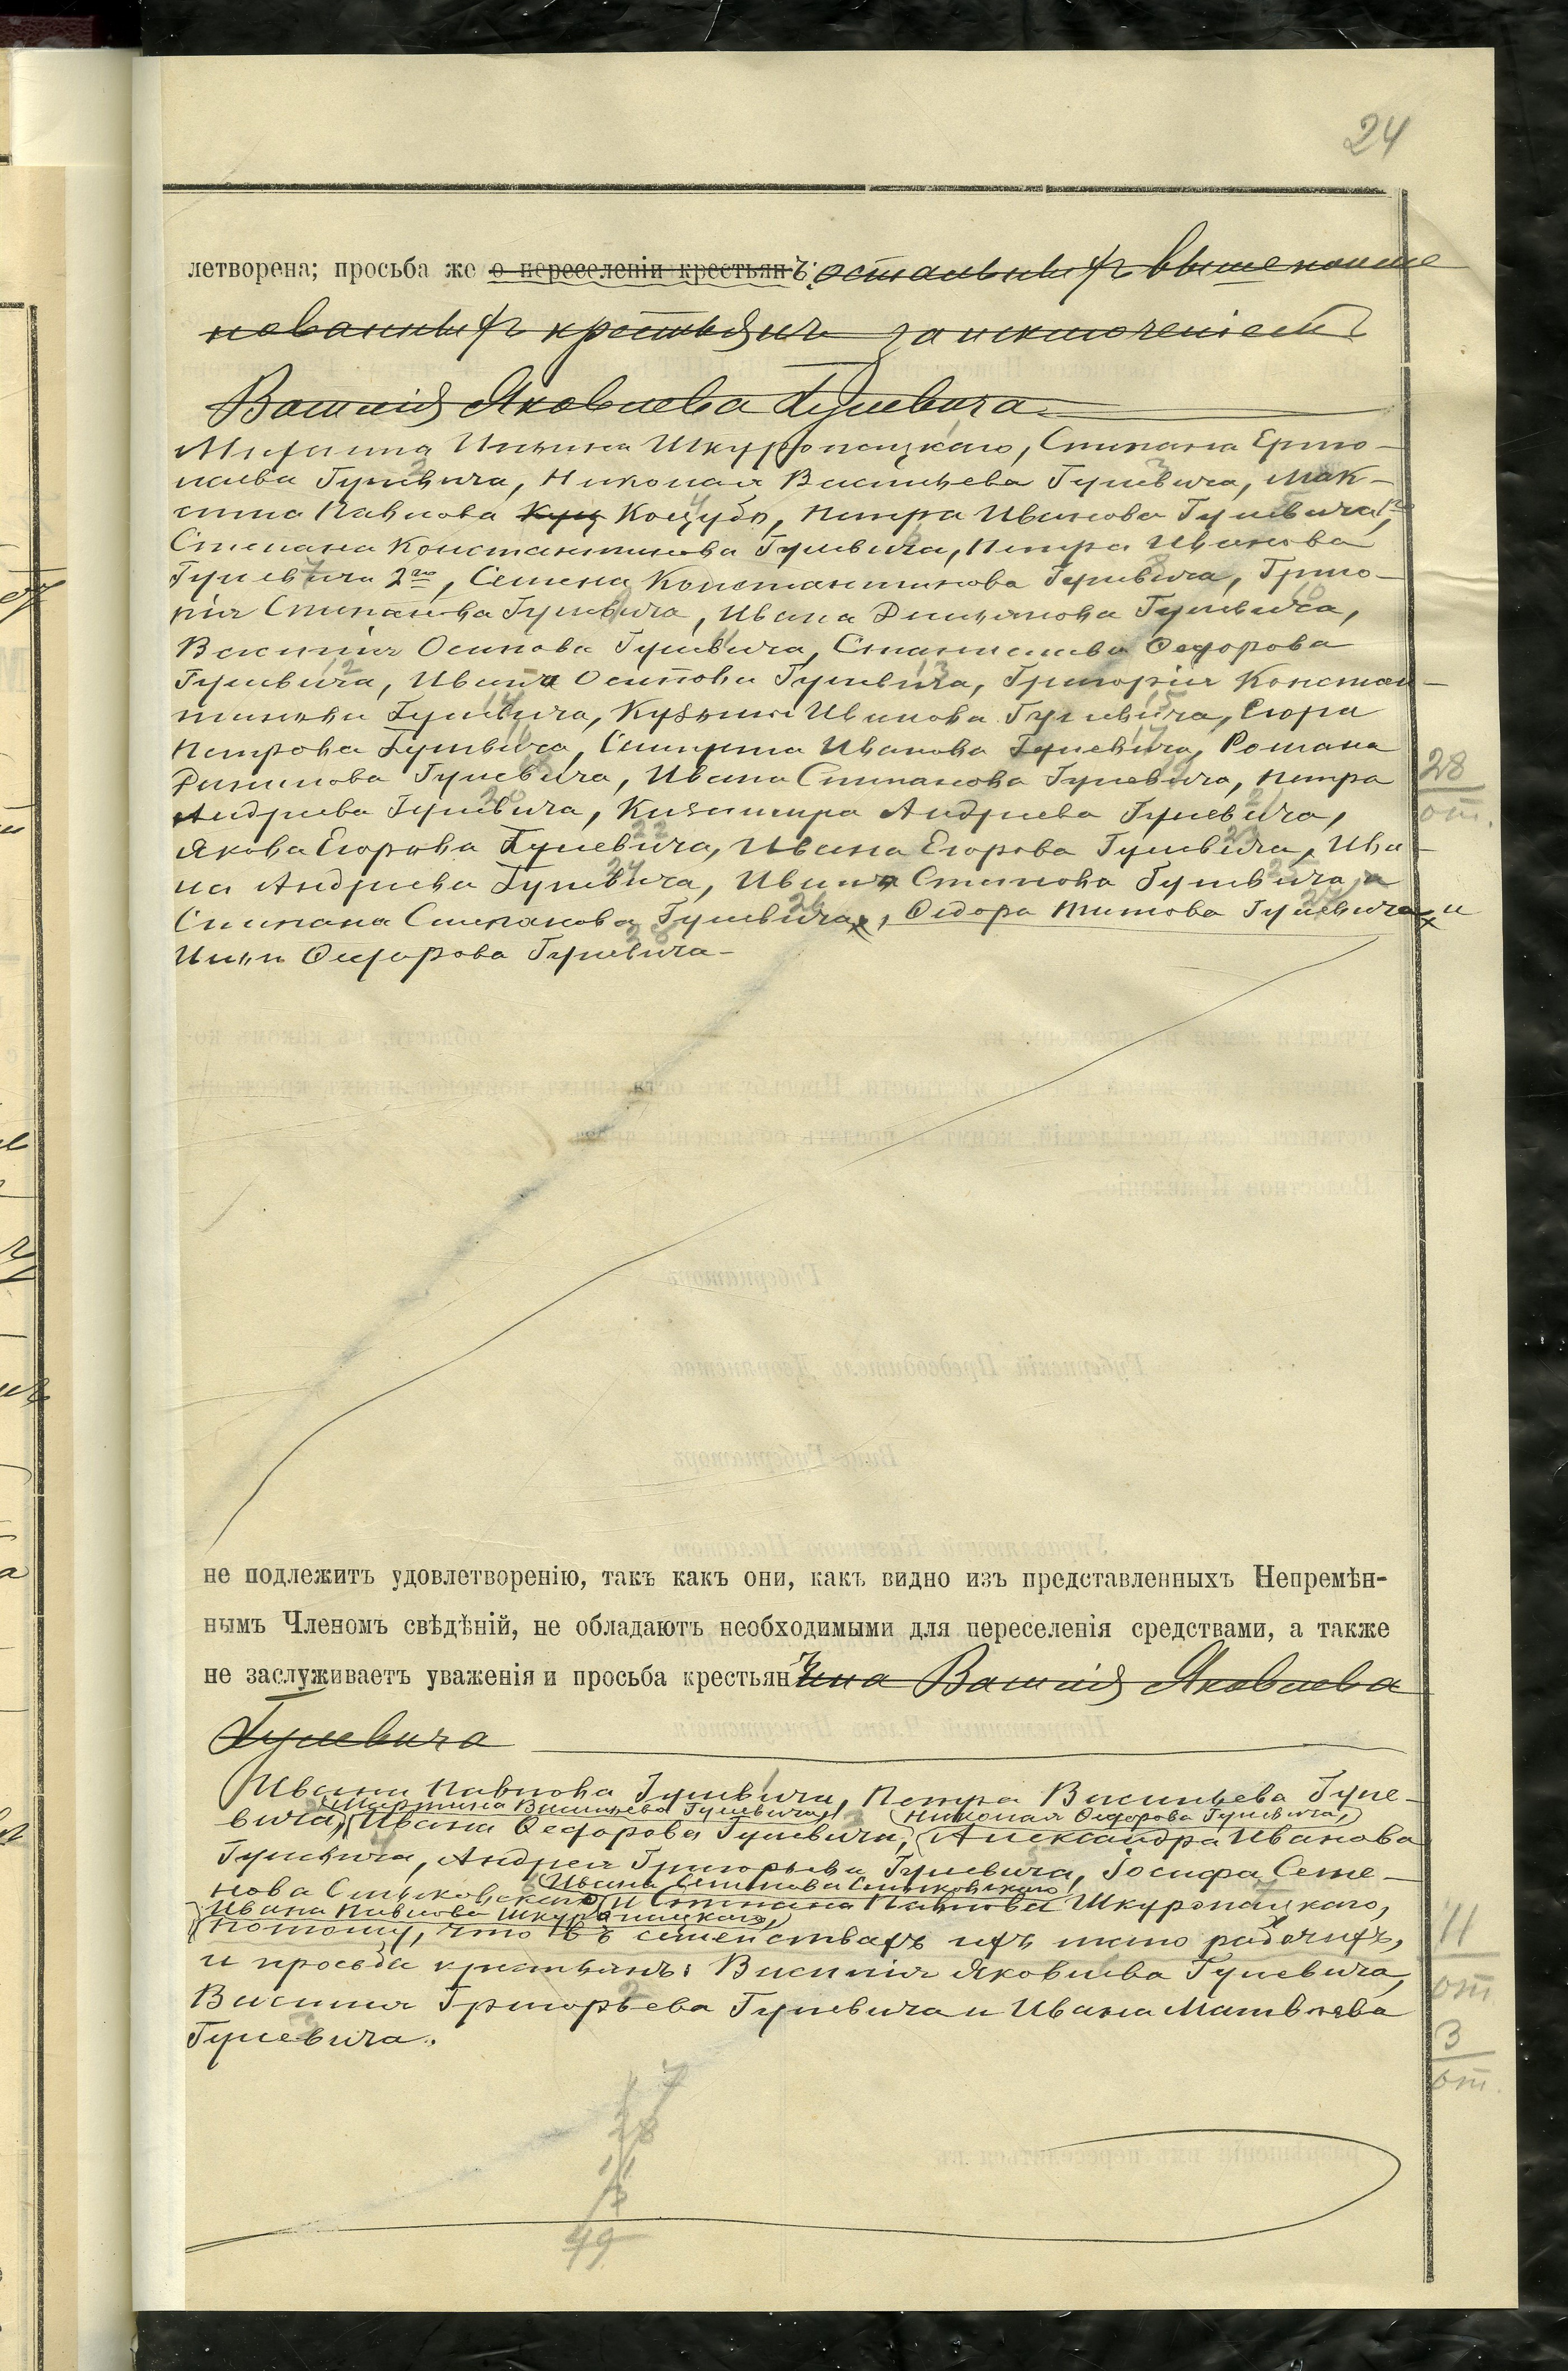 24
летворена; просьба же о переселеніи крестьянъ: остальныхъ вышепоиме
нованныхъ крестьянъ за исключеніемъ
Василія Яковлева Гулевича
Михаила Ильина Шкуропацкаго, Степана Ермо-
лаева Гулевича, Николая Васильева Гулевича, Мак-
сима Павлова Куц Коцубы, Петра Иванова Гулевича 1го,
Степана Константинова Гулевича, Петра Иванова
Гулевича 2го, Семена Константинова Гулевича, Григо-
рія Степанова Гулевича, Ивана Демьянова Гулевича,
Василія Осипова Гулевича, Станислава Федорова
Гулевича, Ивана Осипова Гулевича, Григорія Констан-
тинова Гулевича, Кузьмы Иванова Гулевича, Егора
Петрова Гулевича, Иванова Гулевича, Романа
Филипова Гулевича, Ивана Степанова Гулевича, Петра
Андреева Гулевича, Казимира Андреева Гулевича,
Якова Егорова Гулевича, Ивана Егорова Гулевича, Ива-
на Андреева Гулевича, Ивана Семенова Гулевича,
Степана Степанова Гулевича, Федора Титова Гулевича и
Ильи Федорова Гулевича-
28
от.
не подлежитъ удовлетворенію, такъ какъ они, какъ видно изъ представленныхъ Непремѣн-
нымъ Членомъ свѣдѣній, не обладаютъ необходимыми для переселенія средствами, а также
не заслуживаетъ уваженія и просьба крестьянъ ина Василія Яковлева
Гулевича
Ивана Павлова Гулевича, Петра Васильева Гуле-
Мартина Васильева Гулевича, Николая Федорова Гулевича,
вича, Ивана Федорова Гулевича, Александра Иванова
Гулевича, Андрея Григорьева Гулевича, Іосифа Семе-
Ивана Семенова Сеньковскаго
нова Сеньковскаго и Степана Павлова Шкуропацкаго,
Ивана Павлова Шкуропацкаго,
потому, что въ семействахъ ихъ мало рабочихъ,
и просьба крестьянъ: Василія Яковлева Гулевича,
Василія Григорьева Гулевича и Ивана Матвѣева
Гулевича.
11
от
3
от.
7
28
11
3
49